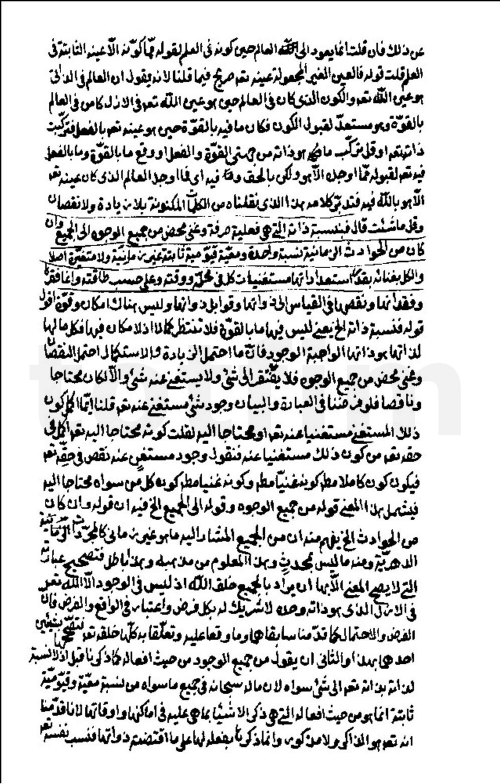 عن ذلك فان قلت انما يعود الى الله العالم حين كونه فى العلم لقوله فما كونه الا عينه الثابتة فى
العلم قلت قوله فالعين الغير المجعولة عينه تعم صريح فيما قلنا لانه يقول ان العالم فى الذاتى
هو عين الله تعم والكون الذى كان فى العالم حين هو عين الله تعم فى الازل كامن فى العالم
بالقوة وهو مستعد لقبول الكون فكان ما فيه بالقوة حين هو عينه تعم بالفعل فتركبت
ذاته تعم او قل تركب ما هو ذاته من جهتى القوة والفعل او وقع ما بالقوة وما بالفعل
فيه تعم لقوله مما اوجد الا هو ولكن بالحق وفيه اى فما اوجد العالم الذى كان عينه تعم
الا هو بالله فيه فتدبر كلامه هذا الذى نقلناه من الكلمات المكنونة بلا زيادة ولا نقصان
وقل ما شئت قال فنسبة ذاته التى هى فعلية صرفة وغنى محض من جميع الوجوه الى الجميع وان
كان من الحوادث الزمانية نسبة واحدة ومعية قيومية ثابتة غير زمانية ولا متغيرة اصلا
والكل بغنائه بقدر استعداداتها مستغنيات كل فى محله ووقته وعلى حسب طاقته وانما فقرها
وفقدانها ونقصها بالقياس الى ذواتها وقوابل ذواتها وليس هناك امكان وقوة اقول
قوله فنسبة ذاته الخ يعنى ليس فيها ما بالقوة فلا تنتظر كمالا اذ لا امكان فيها فكل ما لها
لذاتها هو ذاتها الواجبة الوجود فان ما احتمل الزيادة والاستكمال احتمل النقصان
وغنى محض من جميع الوجوه فلا يفتقر الى شئ ولا يستغنى عنه شئ والا لكان محتاجا
وناقصا فلو فرضنا فى العبارة والبيان وجود شئ مستغن عنه تعم قلنا انما اكمل كون
ذلك المستغنى مستغنيا عنه تعم او محتاجا اليه لقلت كونه محتاجا اليه تعم اكمل فى
حقه تعم من كون ذلك مستغنيا عنه فنقول وجود مستغن عنه نقص فى حقه تعم
فيكون كونه كاملا مطم كونه غنيا مطم وكونه غنيا مطم كون كل من سواه محتاجا اليه
فيشمل هذا المعنى قوله من جميع الوجوه وقوله الى الجميع الخ فيه ان قوله وان كان
من الحوادث الخ يفهم منه ان من الجميع المشار اليه ما هو غير زمانى كالمجردات
الدهرية وعنده ما ليس بمحدث وهذا المعلوم من مذهبه وهذا باطل فتصحيح عبارته
التى لا يصح المعنى الا بها ان يراد بالجميع خلق الله اذ ليس فى الوجود الا الله تعم
فى الازل الذى هو ذاته وحده لا شريك له بكل فرض واعتبار فى الواقع والفرض فان
الفرض والاحتمال كما قدمنا سابقا هما وما وقعا عليه وتعلقا به كلها خلقه تعم
احدهما هذا والثانى ان يقول من جميع الوجود من حيث افعاله كما ذكرنا قبل اذ لا نسبة
لذاته بذاته تعم الى شئ سواه لان ماله سبحانه فى جميع ما سواه من نسبة معية وقيومية
ثابتة انما هو من حيث افعاله التى هى ذكر الاشياء بما هى عليه فى امكنتها واوقاتها لانا قدمنا
انه تعم هو الذاكر ولا مذكور وانما ذكرها بفعله لها على ما اقتضته ذواتها فنسب نفسه تعم